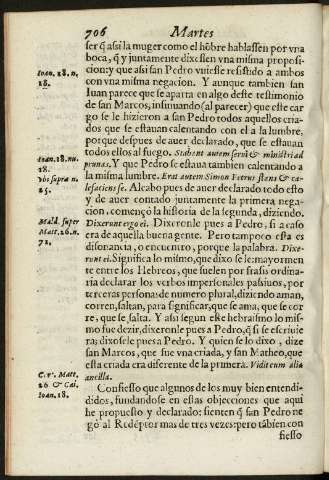 706 Martes
ser q̃ assi la muger como el hõbre hablassen por vna
boca, q̃ y juntamente dixessen vna misma proposi-
cion: y que assi san Pedro vuiesse resistido a ambos
con vna misma negacion. Y aunque tambien san
Iuan parece que se aparta en algo deste testimonio
de san Marcos, insinuando (al parecer) que este car
go se le hizieron a san Pedro todos aquellos cria-
dos que se estauan calentando con el a la lumbre,
porque despues de auer declarado, que se estauan
todos ellos al fuego. Stabant autem serui & ministri ad
prunas, Y que Pedro se estaua tambien calentando a
la misma lumbre. Erat autem Simon Petrus stans & ca-
lefaciens se. Al cabo pues de auer declarado todo esto
y de auer contado juntamente la primera nega-
cion, començò la historia de la segunda, diziendo.
Dixerunt ergo ei. Dixeronle pues a Pedro, si acaso
era de aquella buena gente. Pero tampoco esta es
disonancia, o encuentro, porque la palabra. Dixe-
runt ei. Significa lo mismo, que dixo se le: mayormen
te entre los Hebreos, que suelen por frasis ordina-
ria declarar los verbos impersonales passiuos, por
terceras personas de numero plural, diziendo aman,
corren, saltan, para significar, que se ama, que se cor
re, que se salta. Y assi segun este hebraismo lo mis-
mo fue dezir, dixeronle pues a Pedro, q̃ si se escriuie
ra; dixosele pues a Pedro. Y quien se lo dixo, dize
san Marcos, que fue vna criada, y san Matheo, que
esta criada era diferente de la primera. Vidit eum alia
ancilla.
Confiesso que algunos de los muy bien entendi-
didos, fundandose en estas objecciones que aqui
he propuesto y declarado: sienten q̃ san Pedro ne
gò al Redẽptor mas de tres vezes: pero tãbien con
fiesso
Ioan. 18. n.
18.
Ioan. 18. nu.
18.
Vbi supra n.
25.
Mald. super
Matt. 26. n.
72.
Matt.
26 & Cai.
Ioan. 18.